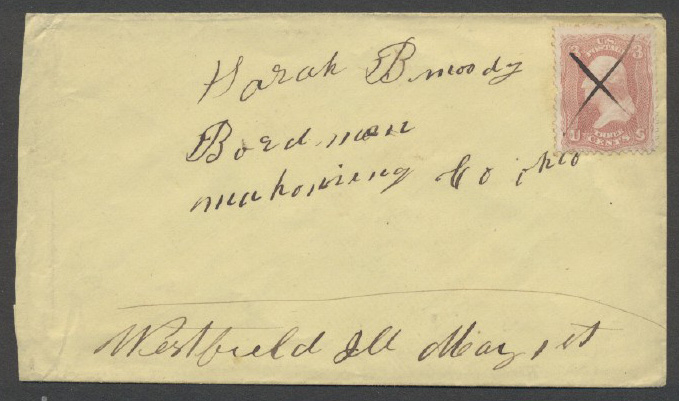 Sarah B moody
Boardman
mahoning Co ohio
3 U.S. POSTAGE 3
U THREE CENTS S
Westfield Ill May 1st